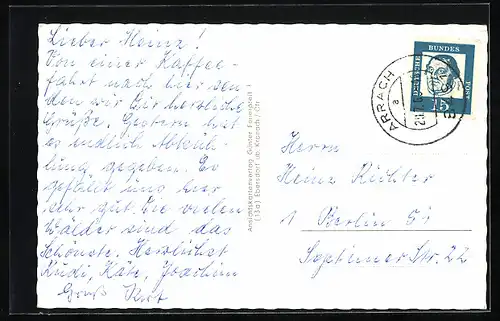 Lieber Heinz!
Von einer Kaffee-
fahrt nach hier sen-
den wir Dir herzliche
Grüße. Gestern hat
es endlich Abküh-
lung gegeben. Es
gefällt uns hier
sehr gut. Die vielen
Wälder sind das
Schönste. Herzlichst
Rudi, Käte, Joachim
Gruß Kurt
Ansichtskartenverlag Günter
(13a) Ebersdorf üb. Kronach/Ofr.
ARRACH
a
DEUTSCHE
BUNDES
POST
15
Herrn
Heinz Richter
1 Berlin 51
Septimer Str. 22